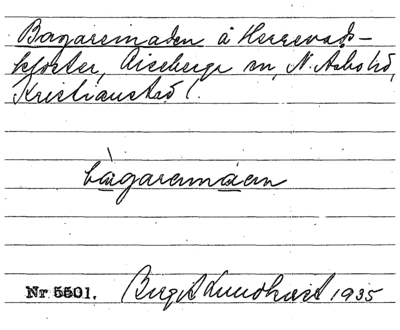 Bagaremaden å Herrevads-
kloster, Riseberga sn, N. Åsbo hd,
Kristianstad l.
bàgaremáen
Nr 5501. Birgit Lundkvist 1935